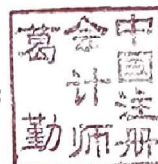 中国注册
会计师
葛勤